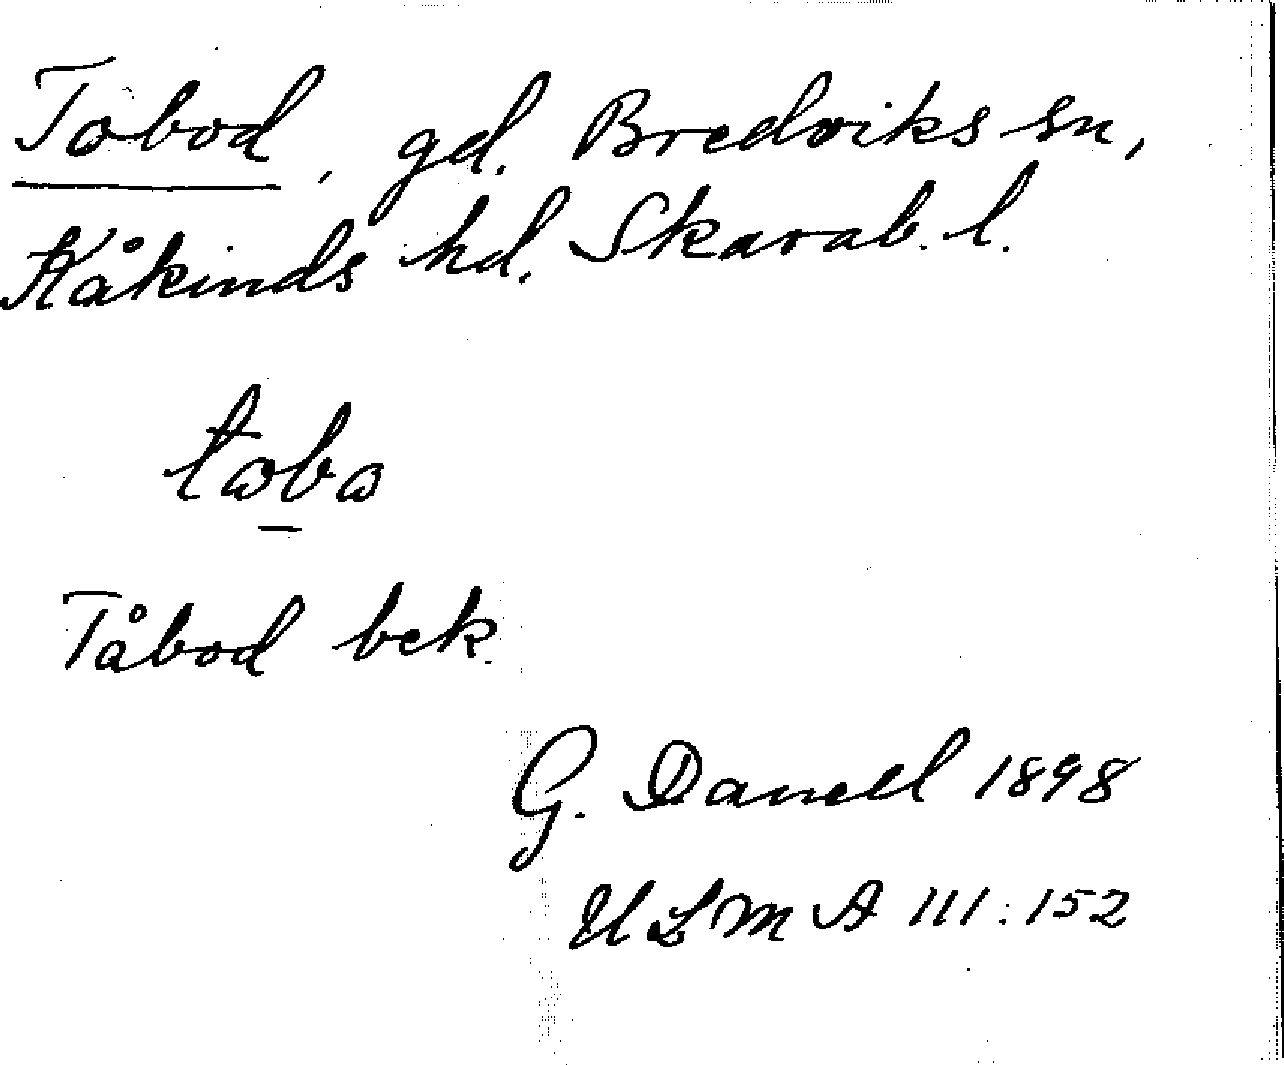 Tobod, gd. Bredviks sn,
Kåkinds hd. Skarab. l.
Tåbod bek.
G. Danell 1898
ULMA 111:152